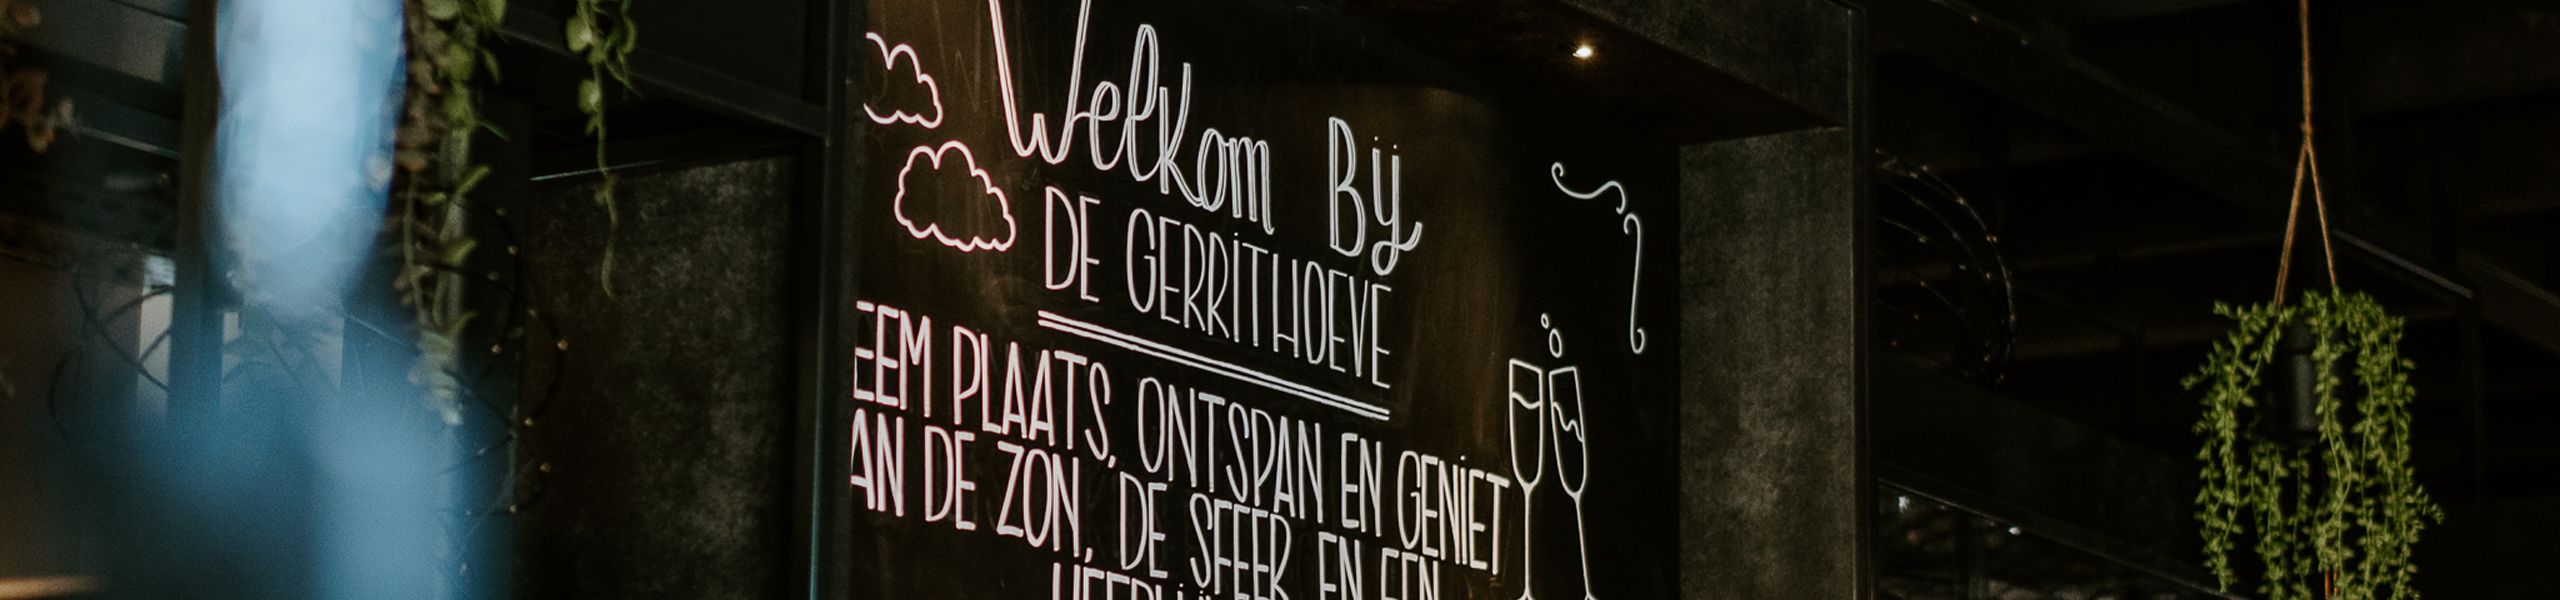 Welkom Bij
DE GERRITHOEVE
EEM PLAATS, ONTSPAN EN GENIET
AN DE ZON, DE SFEER EN EEN